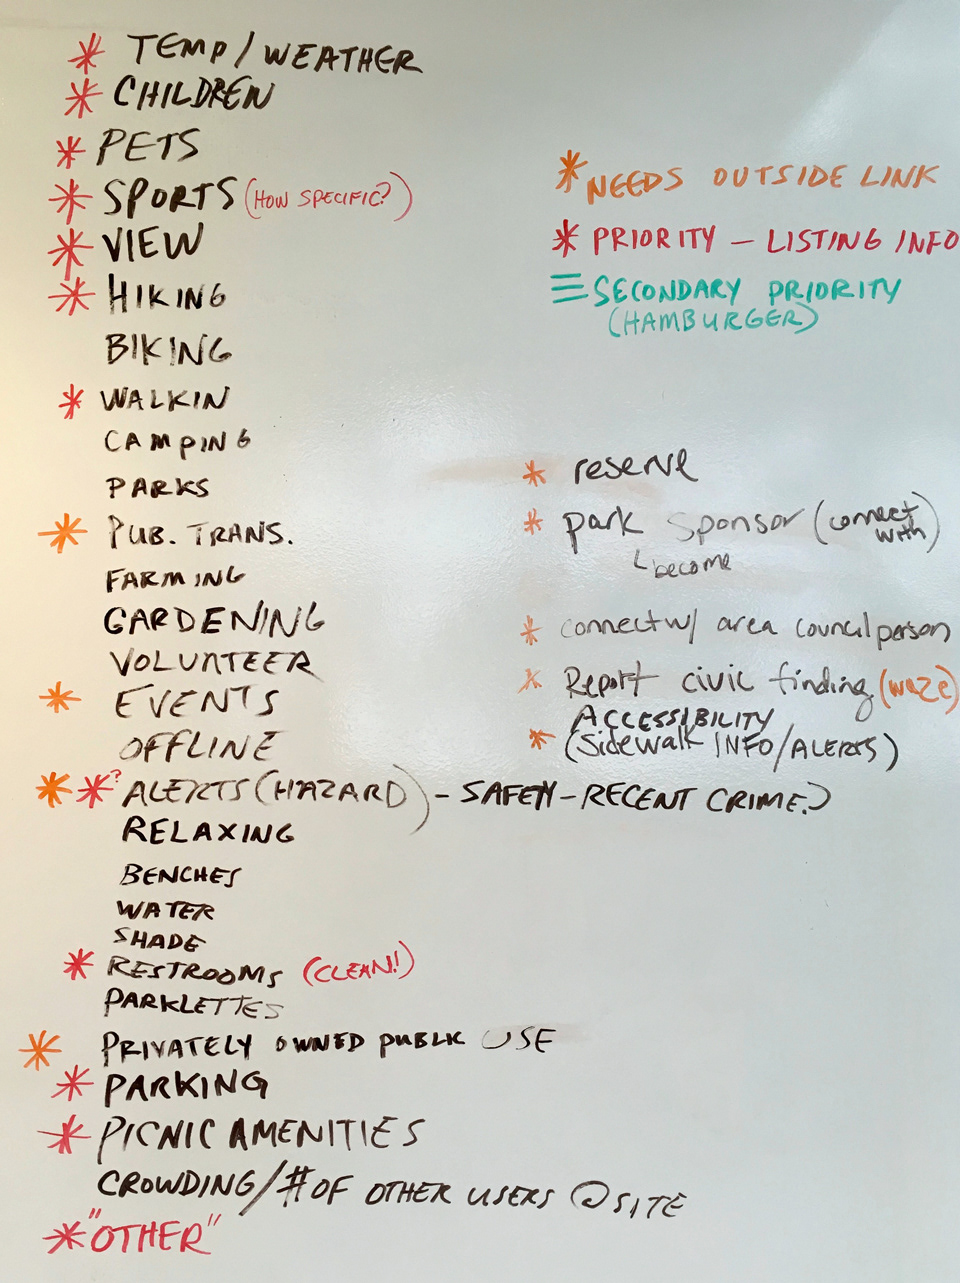 * TEMP/WEATHER
* CHILDREN
* PETS
* SPORTS (HOW SPECIFIC?)
* VIEW
* HIKING
BIKING
* WALKIN
CAMPING
PARKS
* PUB. TRANS.
FARMING
GARDENING
VOLUNTEER
* EVENTS
OFFLINE
* *? ALERTS (HAZARD) - SAFETY - RECENT CRIME?
RELAXING
BENCHES
WATER
SHADE
* RESTROOMS (CLEAN!)
PARKLETTES
* PRIVATELY OWNED PUBLIC USE
* PARKING
* PICNIC AMENITIES
CROWDING/# OF OTHER USERS @ SITE
* "OTHER"
* NEEDS OUTSIDE LINK
* PRIORITY - LISTING INFO
≡ SECONDARY PRIORITY
(HAMBURGER)
* reserve
* park sponsor (connect with)
become
* connect w/ area council person
* Report civic finding (waze)
ACCESSIBILITY
* (Sidewalk INFO/ALERTS)